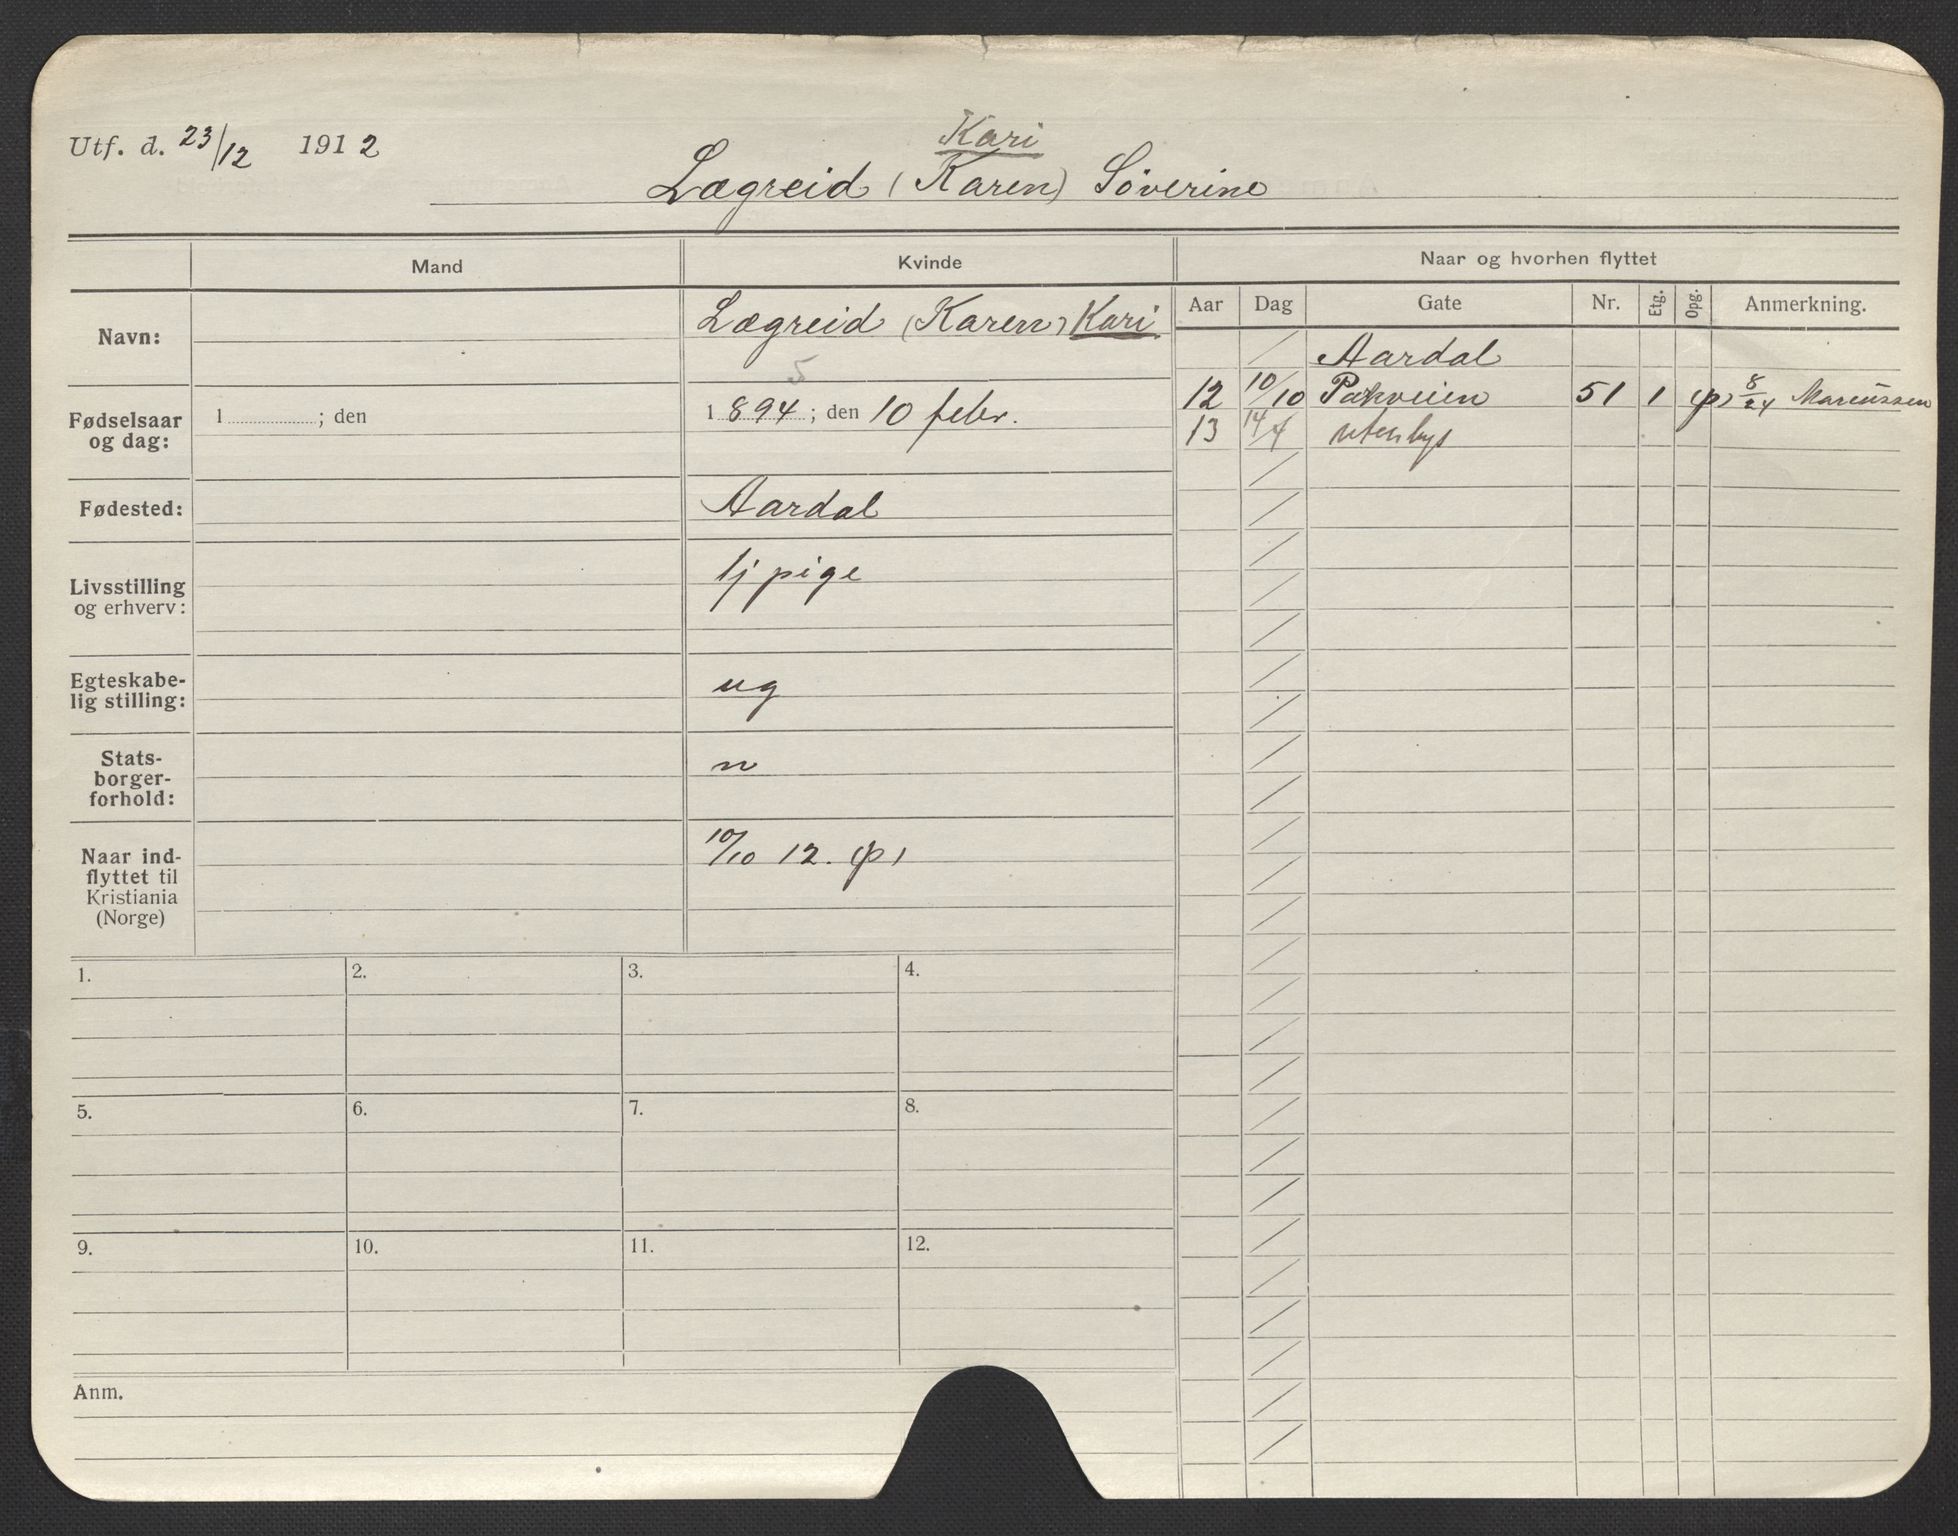 Utf. d. 23/12 1912
Kari
Lægreid (Karen) Søverine
Mand
Kvinde
Naar og hvorhen flyttet
Navn:
Lægreid (Karen) Kari
Aar Dag Gate Nr. Etg. Opg. Anmerkning.
Aardal
12 10/10 Parkveien 51 1 8/24 Marcussen
13 14/4 utenbys
5
Fødselsaar og dag:
1 ; den
1894 ; den 10 febr.
Fødested:
Aardal
Livsstilling og erhverv:
tj pige
Egteskabe-
lig stilling:
ug
Stats-
borger-
forhold:
n
Naar ind-
flyttet til
Kristiania
(Norge)
10/10 12.
1. 2. 3. 4.
5. 6. 7. 8.
9. 10. 11. 12.
Anm.